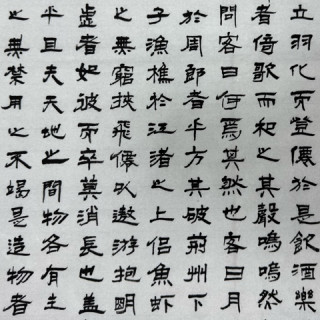 立羽化而登僊於是飲酒樂
者倚歌而和之其聲嗚嗚然
問客曰何為其然也客曰月
於周郎者乎方其破荊州下
子漁樵於江渚之上侶魚蝦
之無窮挾飛僊以遨游抱明
虛者如彼而卒莫消長也蓋
乎且夫天地之間物各有主
之無禁用之不竭是造物者